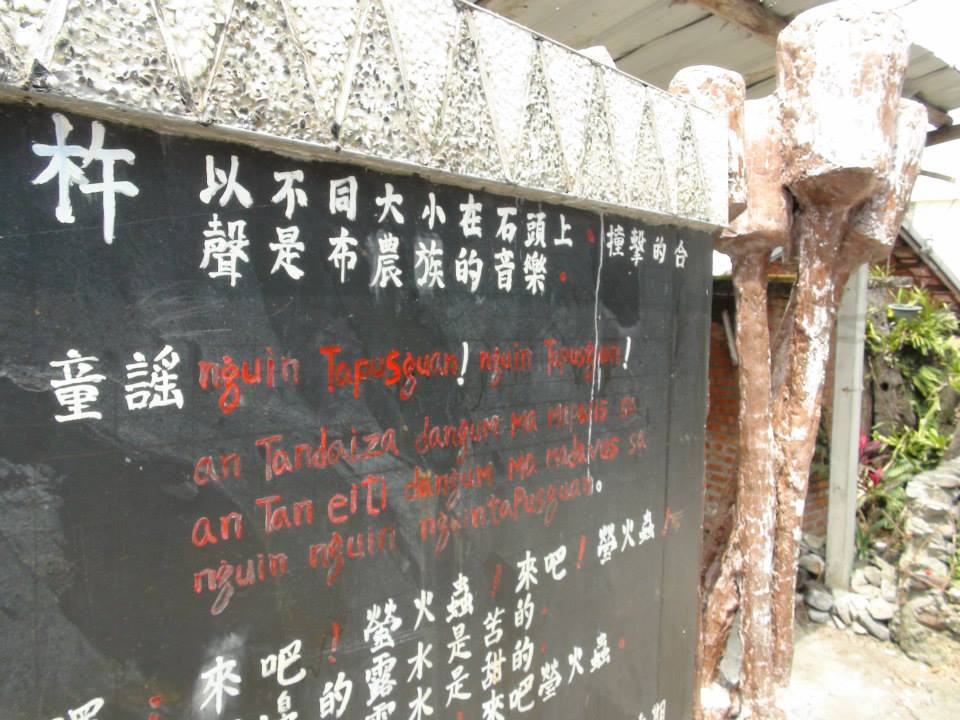 杵 以不同大小在石頭上。撞擊的合
聲是布農族的音樂。
童謠 nguin Tapusguan! nguin Tapusguan!
an Tandaiza dangum ma mapais sa
an Tan eiti dangum ma madavus sa
nguin nguin nguintapusguan。
來吧!螢火蟲!來吧!螢火蟲!
的露水是苦的.
露水是甜的.
來吧螢火蟲.